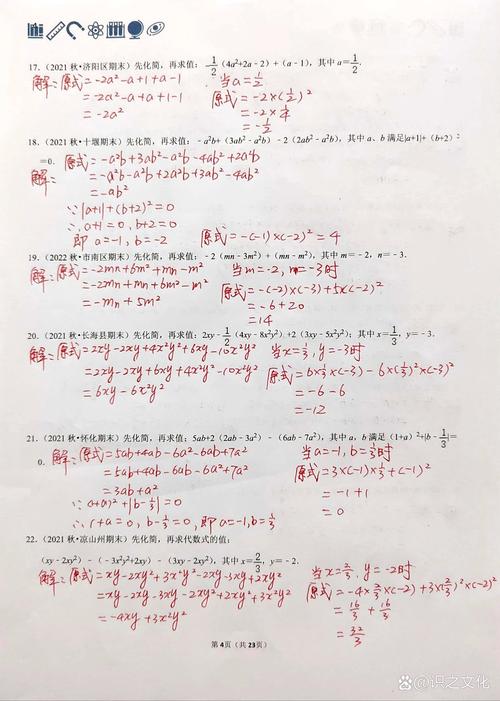 17.（2021 秋•济阳区期末）先化简，再求值：-1/2（4a²+2a﹣2）+（a﹣1），其中 a=1/2．
解：原式=-2a²-a+1+a-1 当a=1/2
=-2a²-a+a+1-1 原式=-2×(1/2)²
=-2a² =-2×1/4
=-1/2
18.（2021 秋•十堰期末）先化简，再求值：﹣a²b+（3ab²﹣a²b）﹣2（2ab²﹣a²b），其中 a、b 满足|a+1|+（b+2）²
=0．
解：原式=-a²b+3ab²-a²b-4ab²+2a²b
=-a²b-a²b+2a²b+3ab²-4ab²
=-ab²
∵|a+1|+(b+2)²=0
∴a+1=0, b+2=0
即 a=-1, b=-2 原式=-(-1)×(-2)²=4
19.（2022 秋•市南区期末）先化简，再求值：﹣2（mn﹣3m²）+（mn﹣m²），其中 m=﹣2，n=﹣3．
解：原式=-2mn+6m²+mn-m² 当m=-2, n=-3时
=-2mn+mn+6m²-m² 原式=-(-2)×(-3)+5×(-2)²
=-mn+5m² =-6+20
=14
20.（2021 秋•长海县期末）先化简，再求值：2xy﹣1/2（4xy﹣8x²y²）+2（3xy﹣5x²y²）；其中 x=1/3，y=﹣3．
解：原式=2xy-2xy+4x²y²+6xy-10x²y² 当x=1/3, y=-3时
=2xy-2xy+6xy+4x²y²-10x²y² 原式=6×1/3×(-3)-6×(1/3)²×(-3)²
=6xy-6x²y² =-6-6
=-12
21.（2021 秋•怀化期末）先化简，再求值：5ab+2（2ab﹣3a²）﹣（6ab﹣7a²），其中 a，b 满足（1+a）²+|b﹣1/3|=
0．
解：原式=5ab+4ab-6a²-6ab+7a² 当a=-1, b=1/3时
=5ab+4ab-6ab-6a²+7a² 原式=3×(-1)×1/3+(-1)²
=3ab+a² =-1+1
∵(1+a)²+|b-1/3|=0 =0
∴1+a=0, b-1/3=0, 即a=-1, b=1/3
22.（2021 秋•凉山州期末）先化简，再求代数式的值：
（xy﹣2xy²）﹣（﹣3x²y²+2xy）﹣（3xy﹣2xy²），其中 x=2/3，y=﹣2．
解：原式=xy-2xy²+3x²y²-2xy-3xy+2xy² 当x=2/3, y=-2时
=xy-2xy-3xy-2xy²+2xy²+3x²y² 原式=-4×2/3×(-2)+3×(2/3)²×(-2)²
=-4xy+3x²y² =16/3+16/3
=32/3
第 4页（共 23页）
识之文化